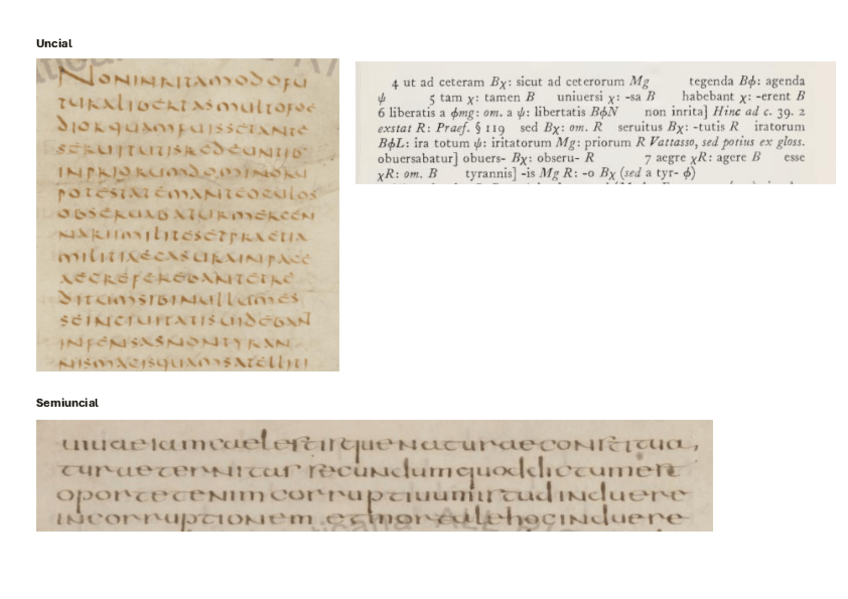 Uncial
NONINRITAMODOFU
TURALIBERTASMULTOFOE
DIORQUAMFUISSETANTE
SERUITUTISREDEUNTIB
INPRIORUMDOMINORU
POTESTATEMANTEOCULOS
OBSERUABATURMERCEN
NARIIMILITESETPRAETIA
MILITIAECASURAINPACE
AEGREFEREBANTETRE
DITUMSIBINULLUMES
SEINCIUITATISUIDEBANT
INFENSASNONTYRAN
NISMAGISQUAMSATELLITI
4 ut ad ceteram Bχ: sicut ad ceterorum Mg tegenda Bϕ: agenda
ψ 5 tam χ: tamen B uniuersi χ: -sa B habebant χ: -erent B
6 liberatis a ϕmg: om. a ψ: libertatis BϕN non inrita] Hinc ad c. 39. 2
exstat R: Praef. § 119 sed Bχ: om. R seruitus Bχ: -tutis R iratorum
BϕL: ira totum ψ: iritatorum Mg: priorum R Vattasso, sed potius ex gloss.
obuersabatur] obuers- Bχ: obseru- R 7 aegre χR: agere B esse
χR: om. B tyrannis] -is Mg R: -o Bχ (sed a tyr- ϕ)
Semiuncial
caelestisquenaturaeconstitua,
turaeternitas secundumquoddictumest
oportetenim corruptiuumistudinduere
incorruptionem etmortalehocinduere